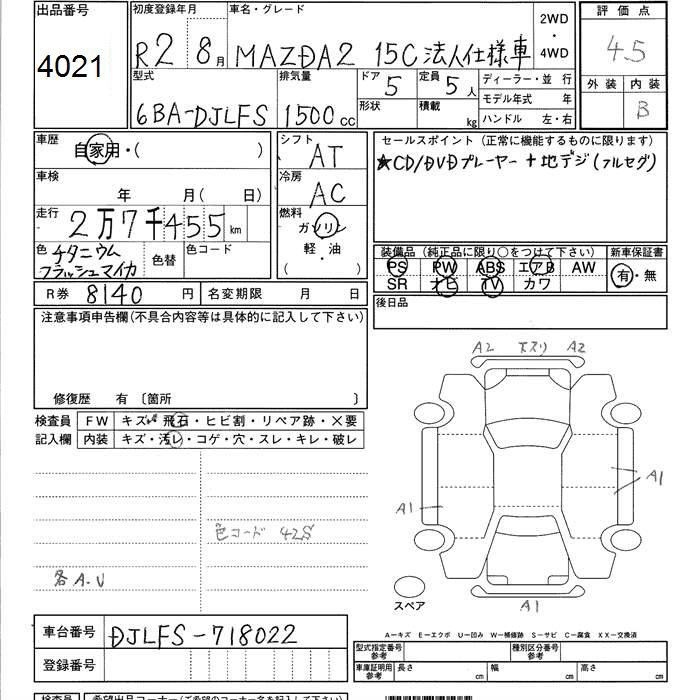 出品番号
4021
初度登録年月 車名・グレード
R2 8月 MAZDA2 15C 法人仕様車
2WD
・
4WD
評 価 点
4.5
外 装 内 装
B
型式 排気量 ドア 定員 ディーラー・並 行
6BA-DJLFS 1500cc 5 5人
形状 積載 kg
モデル年式 年
ハンドル 左・右
車歴
自家用・( )
車検
年 月( 日)
走行 2万7千455km
色 チタニウム
フラッシュマイカ
色替 色コード
シフト
AT
冷房
AC
燃料
ガソリン
軽・油
( ・ )
セールスポイント(正常に機能するものに限ります)
★CD/DVDプレーヤー+地デジ(フルセグ)
装備品(純正品に限り○をつけて下さい) 新車保証書
PS PW ABS エアB AW
SR ナビ TV カワ
有・無
後日品
R券 8140円 名変期限 月 日
注意事項申告欄(不具合内容等は具体的に記入して下さい)
修復歴 有〔箇所 〕
検査員 FW キズ・飛石・ヒビ割・リペア跡・×要
記入欄 内装 キズ・汚レ・コゲ・穴・スレ・キレ・破レ
A2 下スリ A2
A1
A1
A1
色コード 42S
各A.U
スペア
A−キズ E−エクボ U−凹み W−補修跡 S−サビ C−腐食 XX−交換済
車台番号 DJLFS-718022
登録番号
型式指定番号
参考
種別区分番号
参考
車庫証明用
参考
長さ cm 幅 cm 高さ cm
検査員 希望出品コーナー(ご希望のコーナー名を記入して下さい)